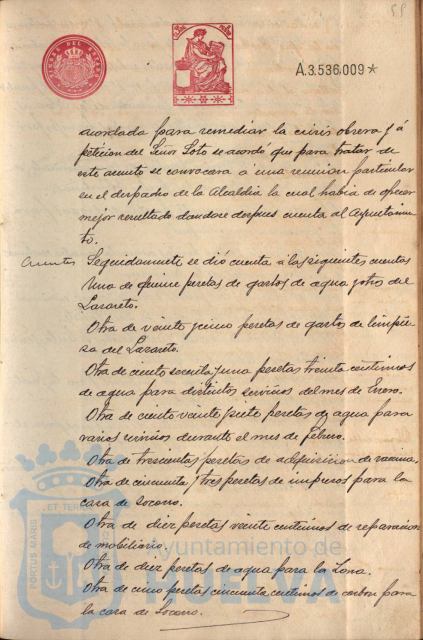 A.3.536.009*
acordada para remediar la crisis obrera y á
peticion del Señor Soto se acordó que para tratar de
este asunto se convocara á una reunion particular
en el despacho de la Alcaldia la cual habia de ofrecer
mejor resultado dandose despues cuenta al Ayuntamien
to.
Cuentas Seguidamente se dió cuenta á las siguientes cuentas
Una de quince pesetas de gastos de agua y otros del
Lazareto.
Otra de veinte y cinco pesetas de gastos de limpie
sa del Lazareto.
Otra de ciento sesenta y una pesetas treinta centimos
de agua para distintos servicios del mes de Enero.
Otra de ciento veinte y siete pesetas de agua para
varios servicios durante el mes de febrero.
Otra de trescientas pesetas de adquisicion de vacuna.
Otra de cincuenta y tres pesetas de impresos para la
casa de Socorro.
Otra de diez pesetas veinte centimos de reparacion
de mobiliario.
Otra de diez pesetas de agua para la Lona.
Otra de cinco pesetas cincuenta centimos de carbon para
la casa de Socorro.
PORTUS MARIS ET TERRAE
Ayuntamiento de
HUELVA